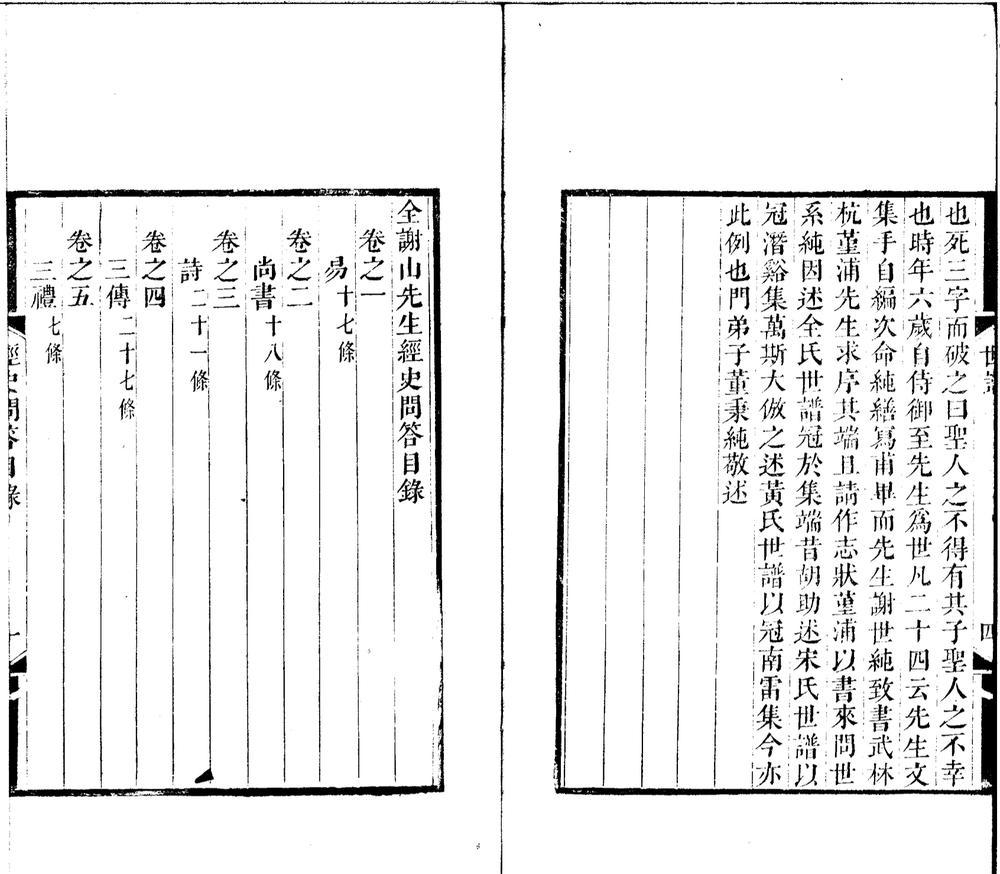 也死三字而破之曰聖人之不得有其子聖人之不幸
也時年六歲自侍御至先生爲世凡二十四云先生文
集手自編次命純繕寫甫畢而先生謝世純致書武林
杭菫浦先生求序其端且請作志狀菫浦以書來問世
系純因述全氏世譜冠於集端昔胡助述宋氏世譜以
冠潛谿集萬斯大倣之述黃氏世譜以冠南雷集今亦
此例也門弟子董秉純敬述
世譜
四
全謝山先生經史問答目錄
卷之一
易十七條
卷之二
尚書十八條
卷之三
詩二十一條
卷之四
三傳二十七條
卷之五
三禮七條
經史問答目錄
一